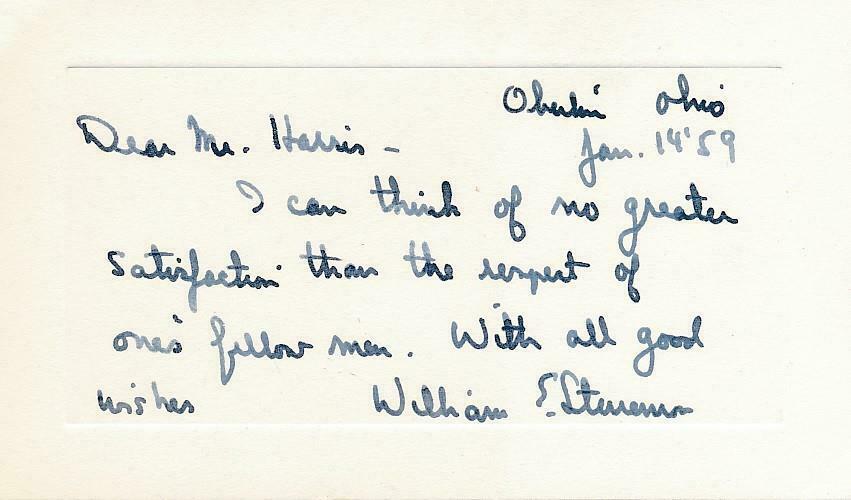 Oberlin Ohio
Dear Mr. Harris - Jan. 14 '59
I can think of no greater
satisfaction than the respect of
one's fellow men. With all good
wishes William E. Stevenson